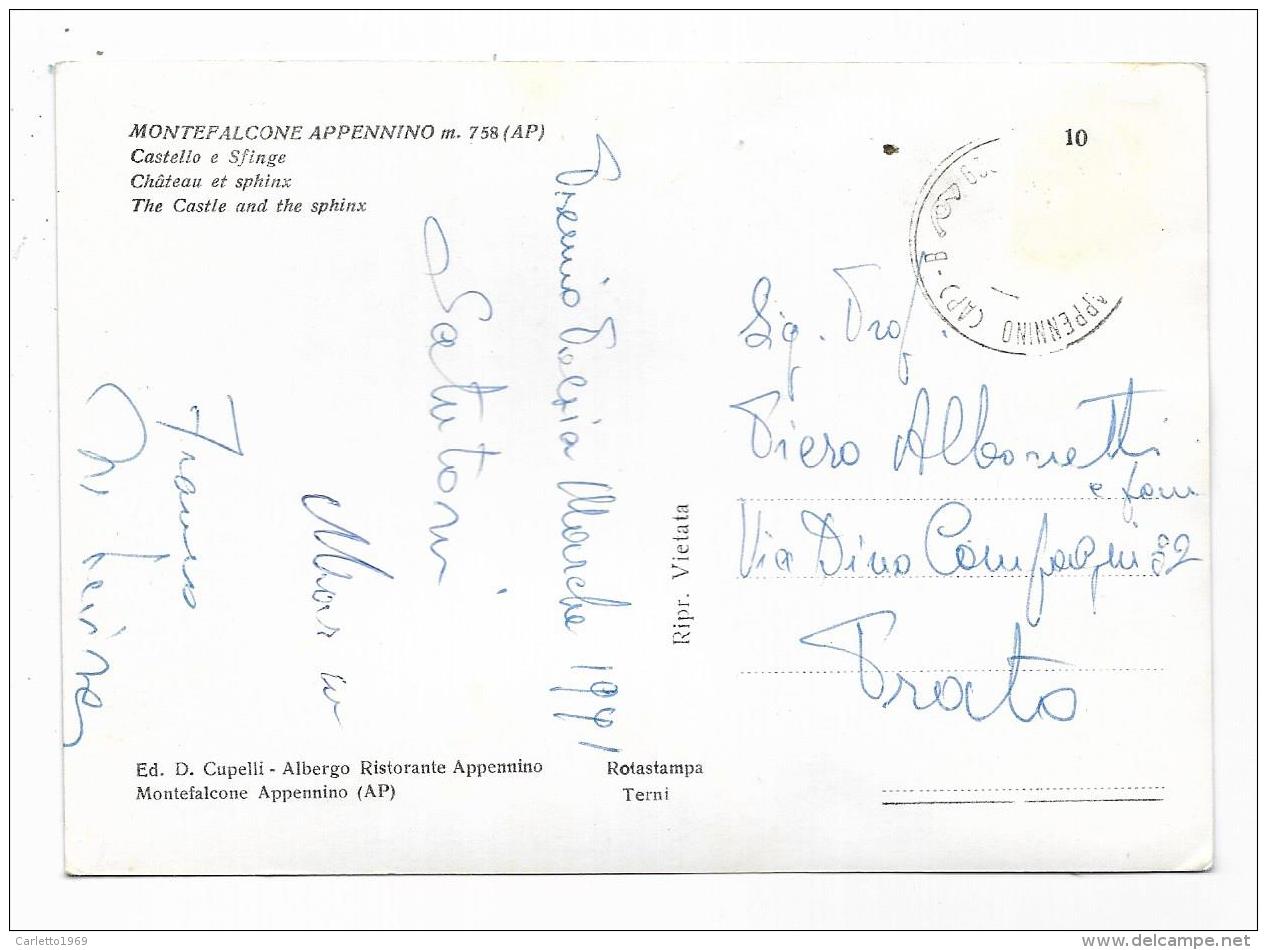 MONTEFALCONE APPENNINO m. 758 (AP)
Castello e Sfinge
Château et sphinx
The Castle and the sphinx
10
APPENNINO (AP) - B
Premio Poesia Marche 1991
Salutoni
Franco
Sig. Prof.
Piero Albonetti
e fam
Via Dino Compagni 82
Prato
Ripr. Vietata
Ed. D. Cupelli - Albergo Ristorante Appennino
Montefalcone Appennino (AP)
Rotastampa
Terni
Carletto1969
delcampe.net